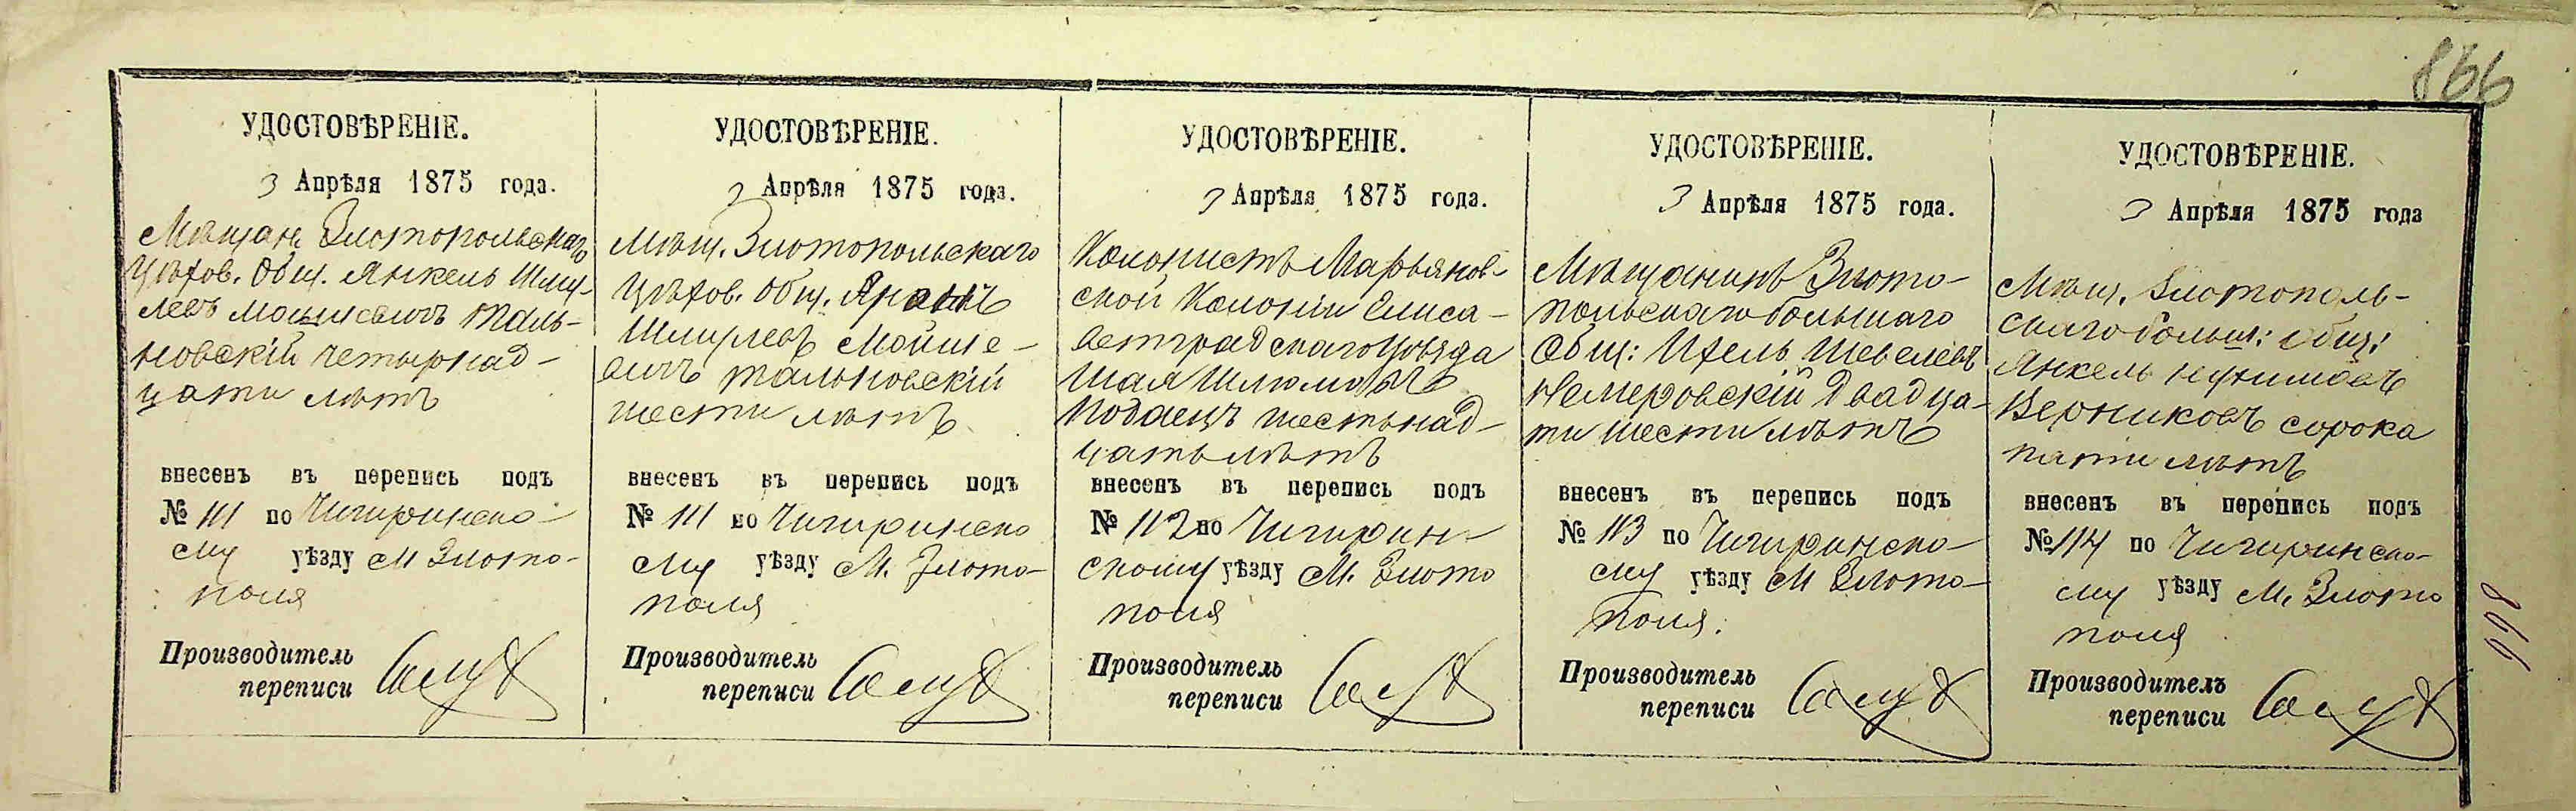 866
УДОСТОВѢРЕНІЕ.
3 Апрѣля 1875 года.
Мѣщан. Златопольскаго
Цѣхов. Общ. Янкель Шму-
левъ Мошковичъ Таль-
новскій четырнад-
цати лѣтъ
внесенъ въ перепись подъ
№ 111 по Чигиринско-
му уѣзду М Злато-
поля
Производитель
переписи
УДОСТОВѢРЕНІЕ.
3 Апрѣля 1875 года.
Мѣщ. Златопольскаго
Цѣхов. Общ.
Шмулевъ Мойше-
вичъ Тальновскій
шести лѣтъ
внесенъ въ перепись подъ
№ 111 по Чигиринско
му уѣзду М. Злато-
поля
Производитель
переписи
УДОСТОВѢРЕНІЕ.
3 Апрѣля 1875 года.
Колонистъ Марьянов-
ской Колоніи Елиса-
ветградскаго уѣзда
Шая Шлиомовъ
Подаецъ шестьнад-
цать лѣтъ
внесенъ въ перепись подъ
№ 112 по Чигирин-
скому уѣзду М. Злато
поля
Производитель
переписи
УДОСТОВѢРЕНІЕ.
3 Апрѣля 1875 года.
Мѣщанинъ Злато-
польскаго большаго
Общ: Ицель Шевелевъ
Немеровскій Двадца-
ти шести лѣтъ
внесенъ въ перепись подъ
№ 113 по Чигиринско-
му уѣзду М Злато-
поля.
Производитель
переписи
УДОСТОВѢРЕНІЕ.
3 Апрѣля 1875 года
Мѣщ. Златополь-
скаго больш: общ:
Янкель Нухимовъ
Верниковъ сорока
пяти лѣтъ
внесенъ въ перепись подъ
№ 114 по Чигиринско-
му уѣзду М. Злато
поля
Производитель
переписи
866